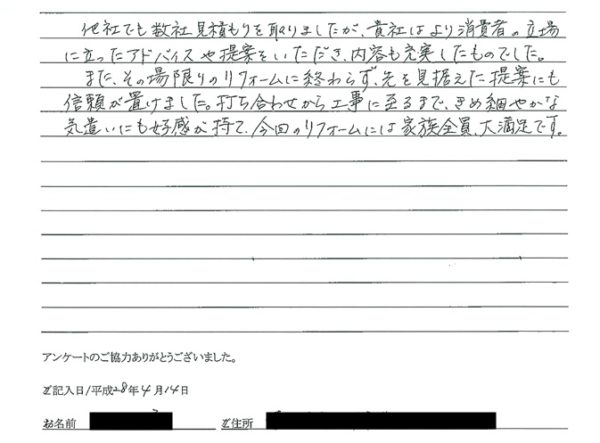 他社でも数社見積もりを取りましたが、貴社はより消費者の立場
に立ったアドバイスや提案をいただき、内容も充実したものでした。
また、その場限りのリフォームに終わらず、先を見据えた提案にも
信頼が置けました。打ち合わせから工事に至るまで、きめ細やかな
気遣いにも好感が持て、今回のリフォームには家族全員、大満足です。
アンケートのご協力ありがとうございました。
ご記入日/平成28年4月14日
お名前 ご住所